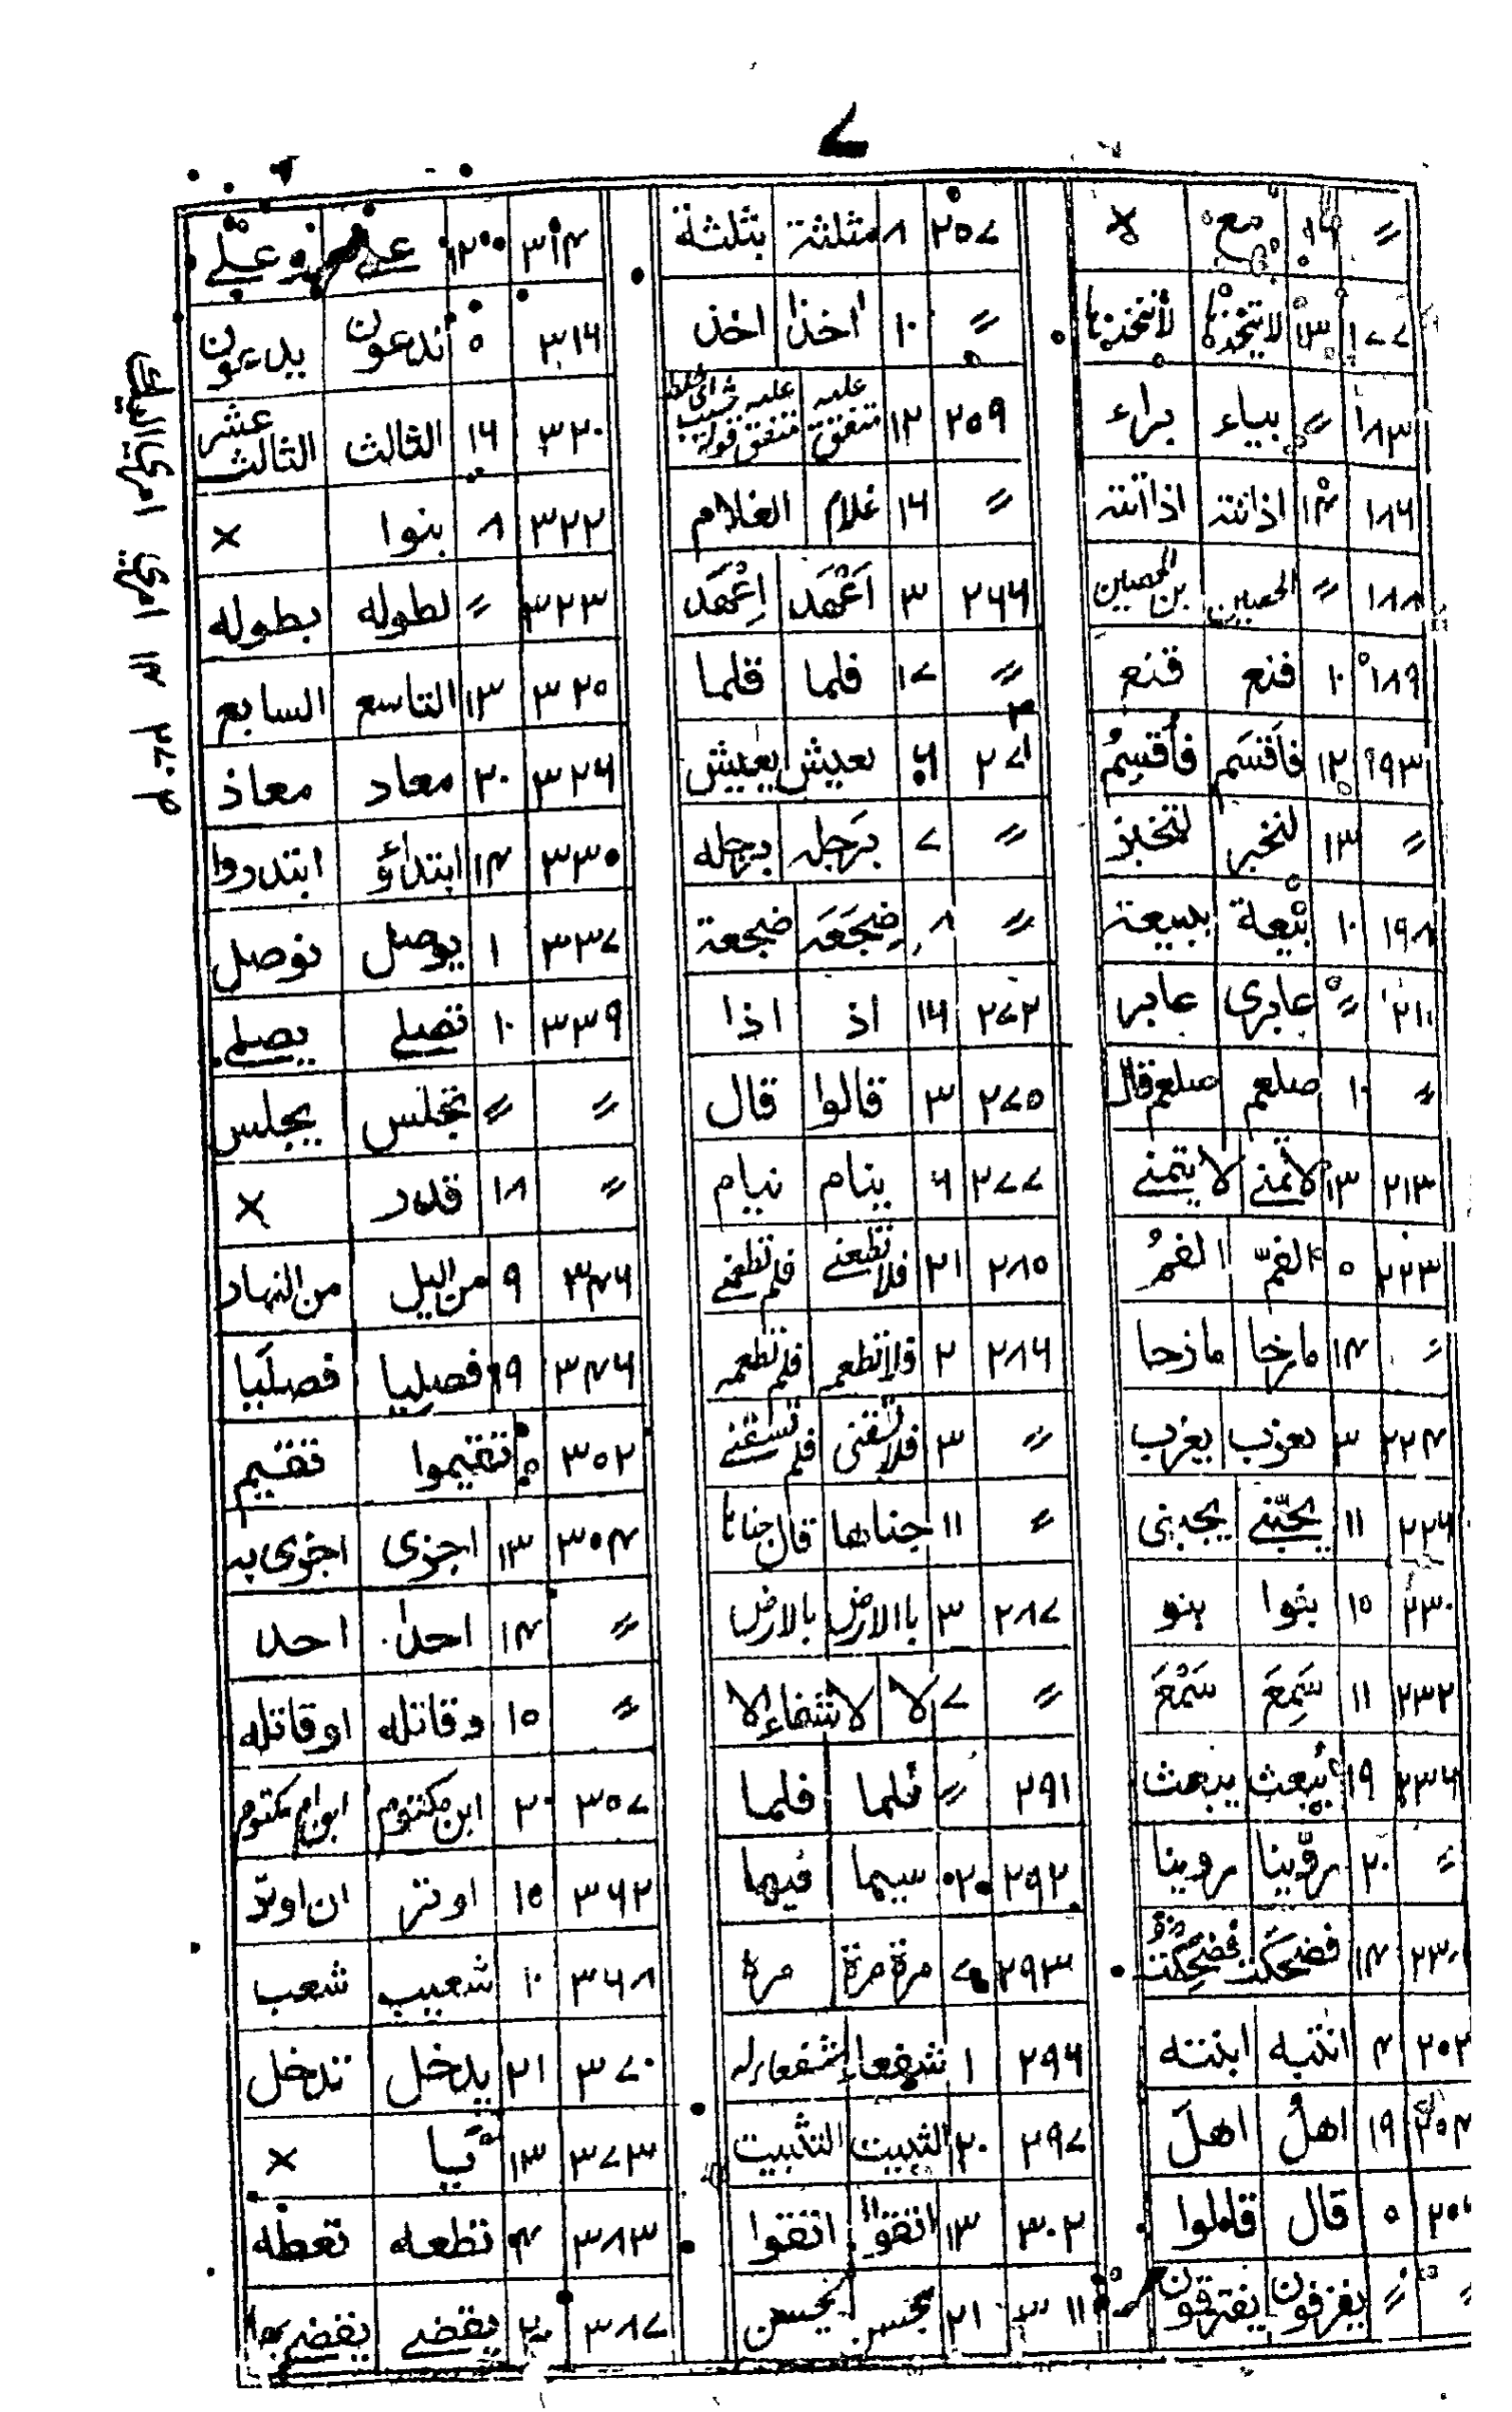 ۷
〃 ۱۶ مع ×
۱۷۷ ۱۳ لایتخذنا لأتتخذنا
۱۸۳ 〃 بیاء براء
۱۸۶ ۱۴ اذانته اذا انته
۱۸۸ 〃 الحصین بن الحصین
۱۸۹ ۱۰ فنع قنع
۱۹۳ ۱۲ فأقسَم فأقسِمُ
〃 ۱۳ لنخبر لتخبز
۱۹۸ ۱۰ بیعة ببیعة
۲۱۰ 〃 عابری عابر
〃 ۱۰ صلعم صلعم قال
۲۱۳ ۱۳ لاتمنے لا یتمنے
۲۲۳ ۵ الضمّ الضمُ
〃 ۱۴ مارخا مازحا
۲۲۴ ۳ بعزب یغرب
۲۲۶ ۱۱ یحبّنے یجبنی
۲۳۰ ۱۵ بنوا بنو
۲۳۲ ۱۱ سَمِعَ سَمْعَ
۲۳۶ ۱۹ یُبعث یبعث
〃 ۲۰ روّینا روینا
۲۳۸ ۱۴ فضحکَت فضحِکتُ
۲۵۲ ۴ انتبه ابنته
۲۵۴ ۱۹ اهلُ اهلَ
۵ قال قالوا
〃 〃 یغزفون یفترقون
۲۵۷ ۸ مثلثة بثلثة
〃 ۱۰ اخذا اخذ
۲۵۹ ۱۲ علیه متفق علیه متفق
〃 ۱۶ غلام الغلام
۲۶۶ ۳ اَعْهَد اِعْهَد
〃 ۱۷ فلما قلما
۲۷۱ ۶ بعیش یعیش
〃 ۷ بَرَجله برجله
〃 ۸ ضِجَعَه ضجعة
۲۷۲ ۱۶ اذ اذا
۲۷۵ ۳ قالوا قال
۲۷۷ ۶ ینام نیام
۲۸۵ ۲۱ فلا تطعمنے فلم تطعمنے
۲۸۶ ۲ فلا تطعمه فلم تطعمه
〃 ۳ فلا تسقنی فلم تسقنے
〃 ۱۱ جناها قال جناها
۲۸۷ ۳ باالارض بالارض
〃 ۷ لا لا شفاء الا
۲۹۱ 〃 ثلما فلما
۲۹۲ ۲۰ سیما فیها
۲۹۳ ۷ مرة مرة مرة
۲۹۶ ۱ شفعاء شفعاء له
۲۹۷ ۲۰ الثبیت التثبیت
۳۰۲ ۱۳ اتقوا اتقوا
۳۱۱ ۲۱
۳۱۴ ۱۲ علے و علے
۳۱۶ ۵ تدعون یدیرون
۳۲۰ ۱۶ الثالث الثالث عشر
۳۲۲ ۸ بنوا ×
۳۲۳ 〃 لطوله بطوله
۳۲۵ ۱۳ التاسع السابع
۳۲۶ ۲۰ معاد معاذ
۳۳۰ ۱۴ ابتداؤ ابتدروا
۳۳۷ ۱ یوصل نوصل
۳۳۹ ۱۰ تصلے یصلے
〃 〃 تجلس یجلس
〃 ۱۸ قدر ×
۳۴۶ ۹ من الیل من النهار
۳۴۶ ۱۹ فصلیا فصلَیا
۳۵۲ تقیموا تقیم
۳۵۴ ۱۳ اجزی اخزی به
〃 ۱۴ احدا احد
〃 ۱۵ وقاتله اوقاتله
۳۵۷ ۲۰ ابن مکتوم ابن ام مکتوم
۳۶۲ ۱۵ اوتر ان اوتر
۳۶۸ ۱۰ شعیب شعب
۳۷۰ ۲۱ یدخل تدخل
۳۷۳ ۱۳ ×
۳۸۳ ۴ تطعه تعطه
۳۸۷ ۲۰ یقضے